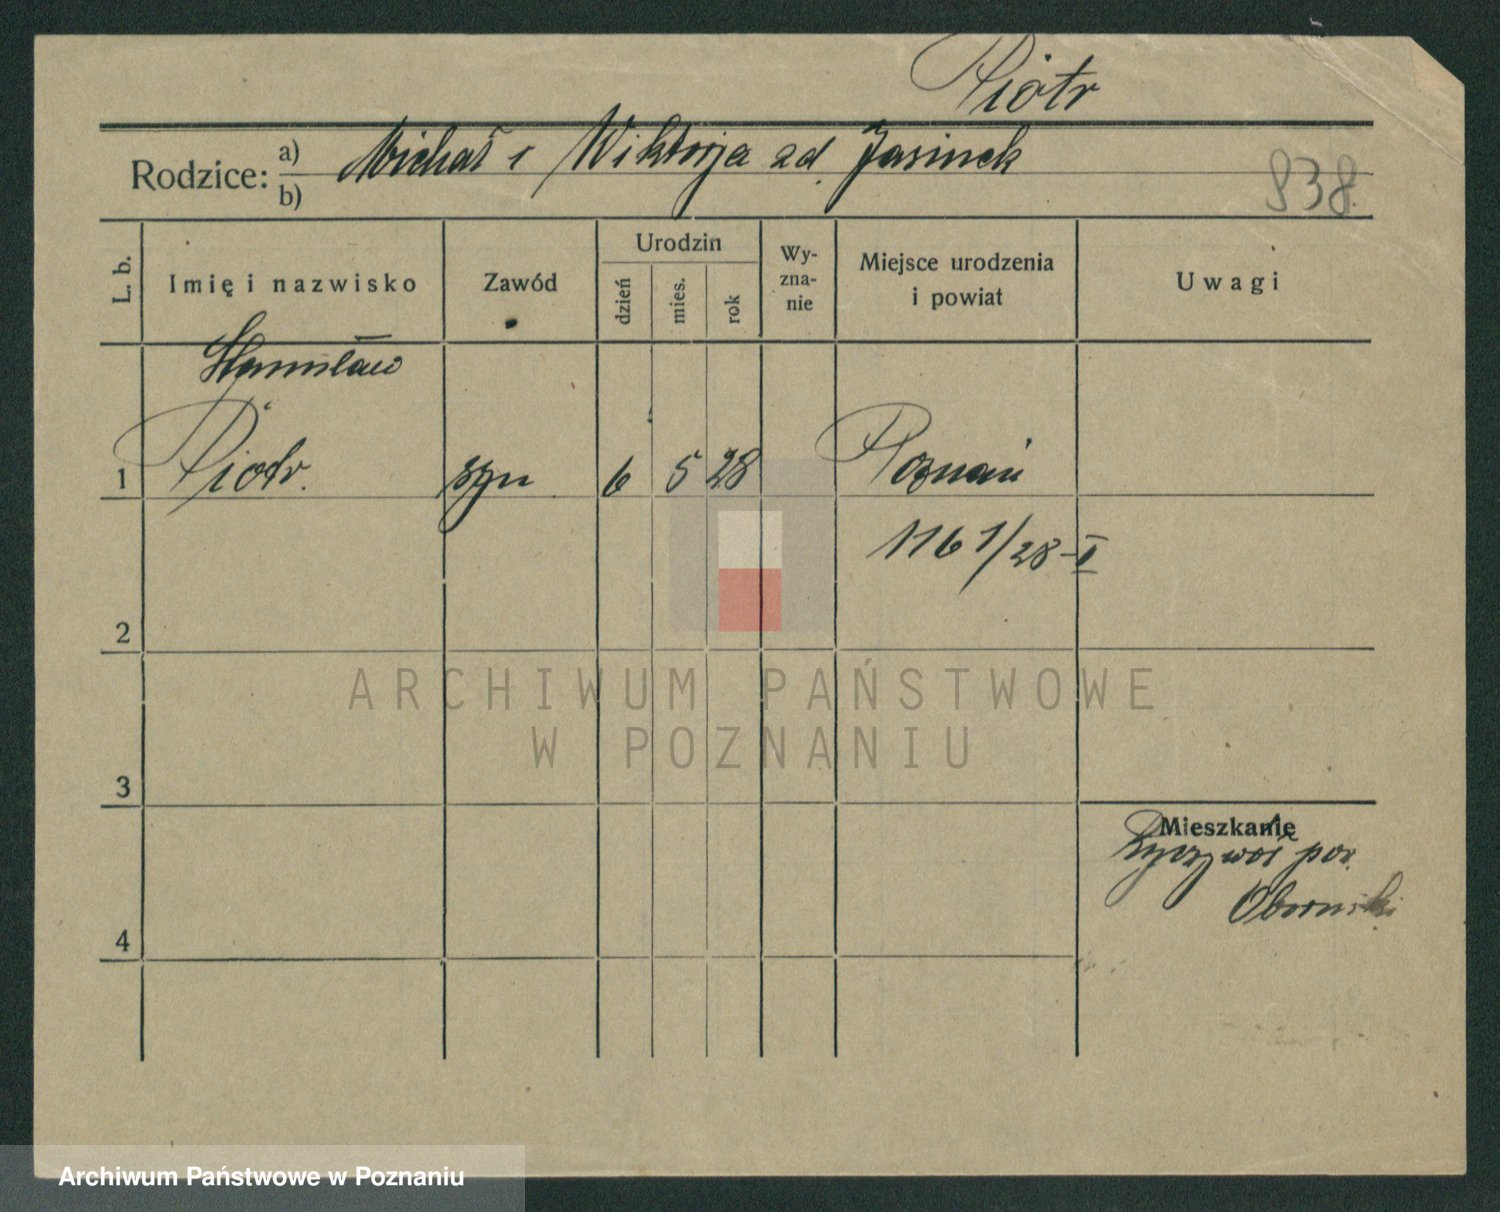 Piotr
Rodzice: a) Michał i Wiktorja zd. Jasinek
b)
838.
L. b.
Imię i nazwisko
Zawód
Urodzin
dzień
mies.
rok
Wy-
zna-
nie
Miejsce urodzenia
i powiat
Uwagi
Stanisław
1 Piotr. syn 6 5 28 Poznań
1161/28-II
2
ARCHIWUM PAŃSTWOWE
W POZNANIU
3
Mieszkanie
Ryczywół pow.
Obornicki
4
Archiwum Państwowe w Poznaniu